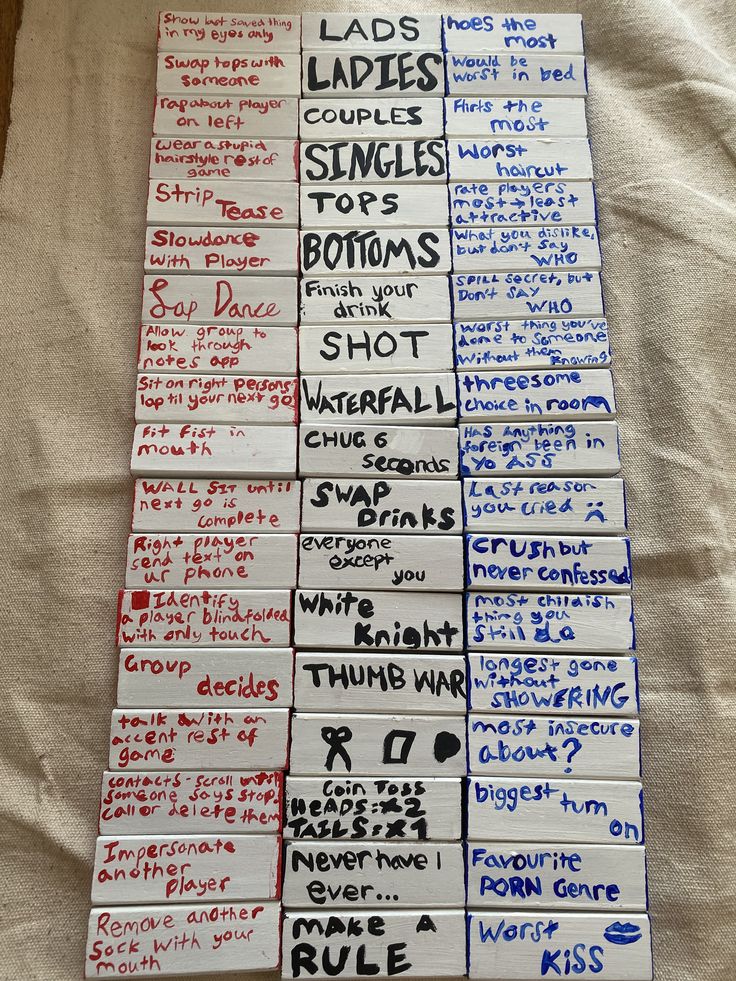 Show last saved thing
in my eyes only
LADS
hoes the
most
Swap tops with
someone
LADIES
Would be
worst in bed
rap about player
on left
COUPLES
Flirts the
most
wear a stupid
hairstyle rest of
game
SINGLES
Worst
haircut
Strip
Tease
TOPS
rate players
most → least
attractive
Slowdance
with Player
BOTTOMS
What you dislike,
but don't say
WHO
Lap Dance
Finish your
drink
SPILL SECRET, but
Don't SAY
WHO
Allow group to
look through
notes app
SHOT
Worst thing you've
done to someone
without them
knowing
Sit on right persons
lap til your next go
WATERFALL
threesome
choice in room
Fit fist in
mouth
CHUG 6
seconds
HAS anything
foreign been in
YO ASS
WALL SIT until
next go is
complete
SWAP
Drinks
Last reason
you cried
Right player
send text on
ur phone
everyone
except
you
crush but
never confessed
Identify
a player blindfolded
with only touch
White
Knight
most childish
thing you
still do
Group
decides
THUMB WAR
longest gone
without
SHOWERING
talk with an
accent rest of
game
most insecure
about?
contacts - scroll until
someone says stop,
call or delete them
Coin Toss
HEADS: x2
TAILS: x1
biggest turn
on
Impersonate
another
player
Never have I
ever...
Favourite
PORN Genre
Remove another
Sock with your
mouth
MAKE A
RULE
Worst
KiSS